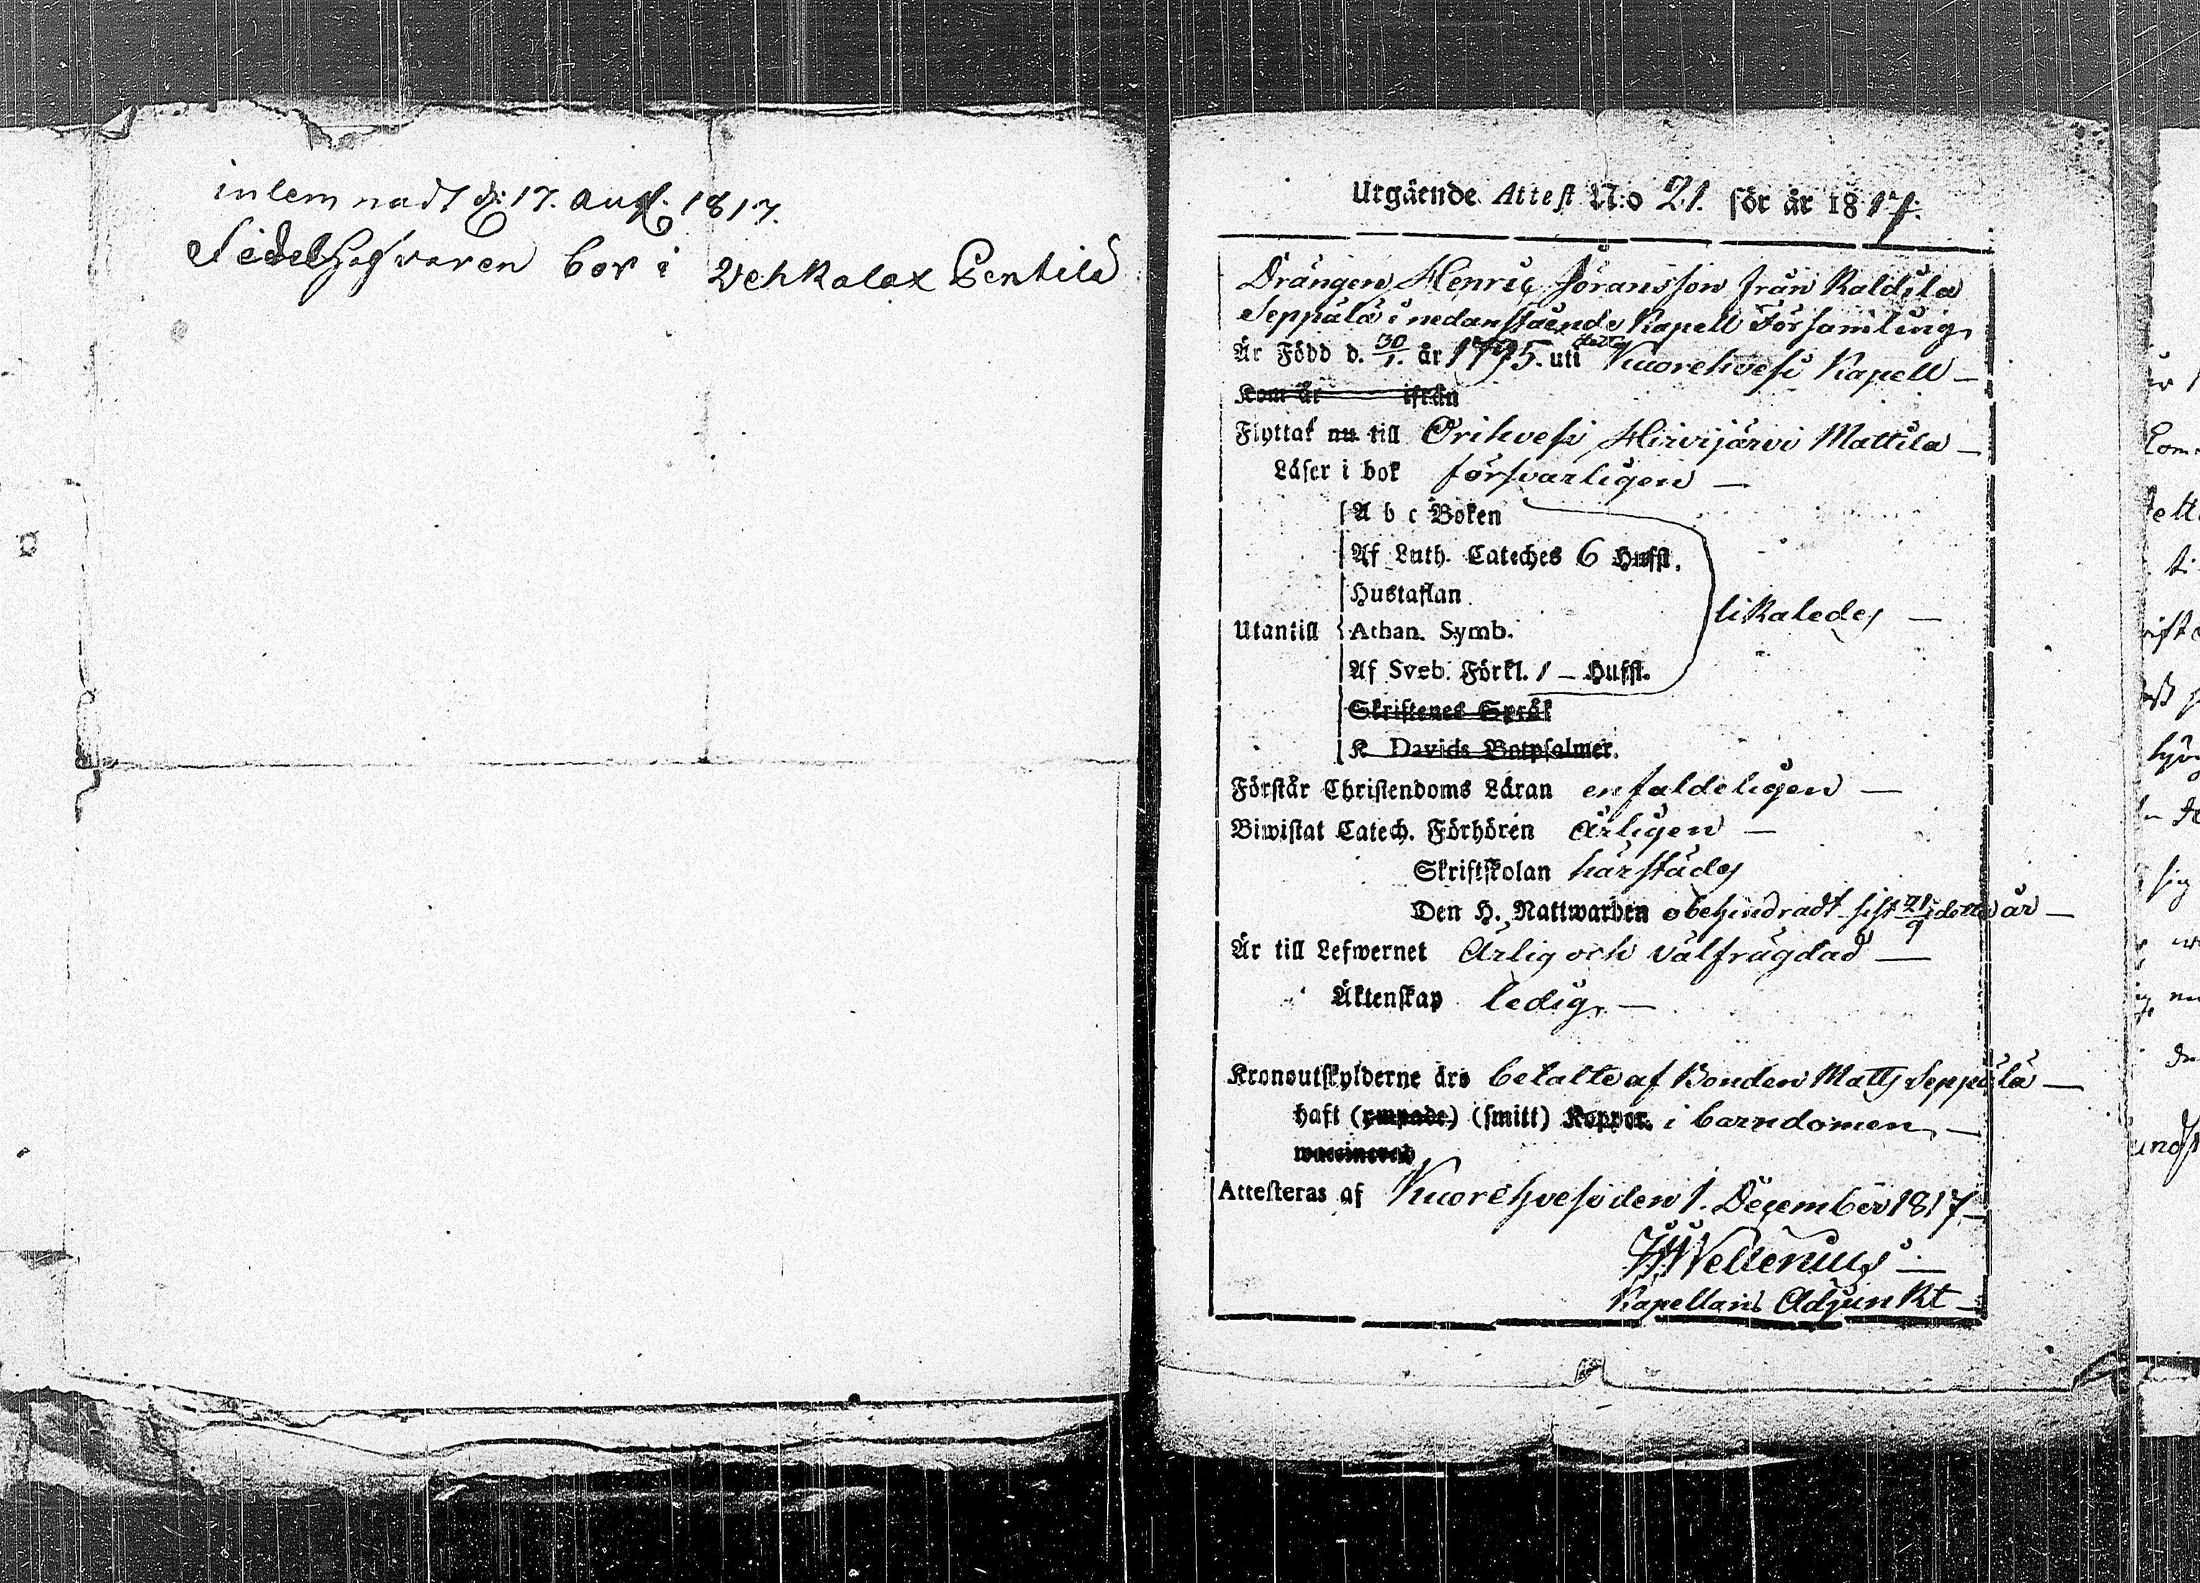 inlemnadt d: 17. Aug. 1817.
Sedelhafvaren bor i Vehkalax Pentilä
Utgående Attest N:o 21. för år 1817.
Drängen Henric Jöransson från Kaldila
Seppälä i nedanstående Kapell Församling
Är Född d. 30/1. år 1795. uti detta Kuorehvesi Kapell —
Kom år ifrån
Flyttat nu till Orihvesi Hirvijärvi Mattila —
Läser i bok försvarligen —
A b c Boken
Af Luth. Cateches 6 Hufst.
Hustaflan
Utantill Athan. Symb. likaledes —
Af Sveb. Förkl. 1 — Hufst.
Skriftenes Språk
K Davids Botpsalmer.
Förstår Christendoms Läran enfaldeligen —
Biwistat Catech. Förhören Årligen —
Skriftskolan härstädes
Den H. Nattwarden obehindradt sist 21/9 detta år —
Är till Lefwernet Ärlig och välfrägdad —
Äktenskap ledig —
Kronoutskylderne äro betalte af Bonden Matts Seppälä —
haft (ympade) (smitt) Koppor. i barndomen —
waccinerad
Attesteras af Kuorehvesi den 1. December 1817 —
Wellenius —
Kapellans Adjunkt —